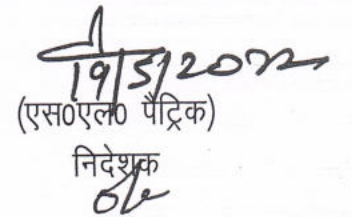 19/5/2022
(एस0एल0 पैट्रिक)
निदेशक